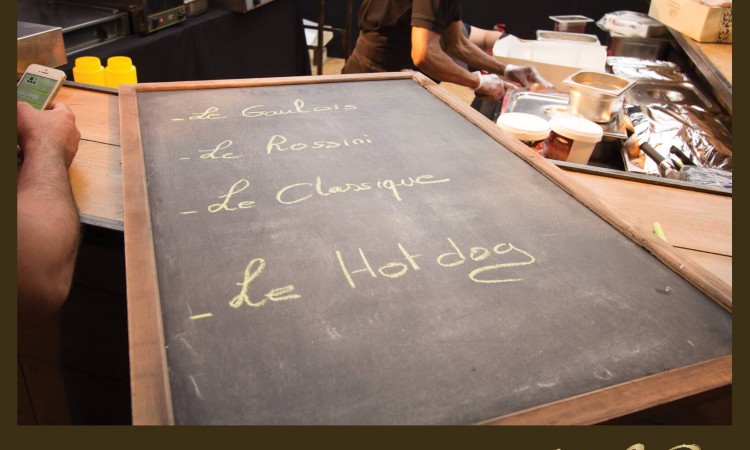 - Le Gaulois
- Le Rossini
- Le Classique
- Le Hot dog